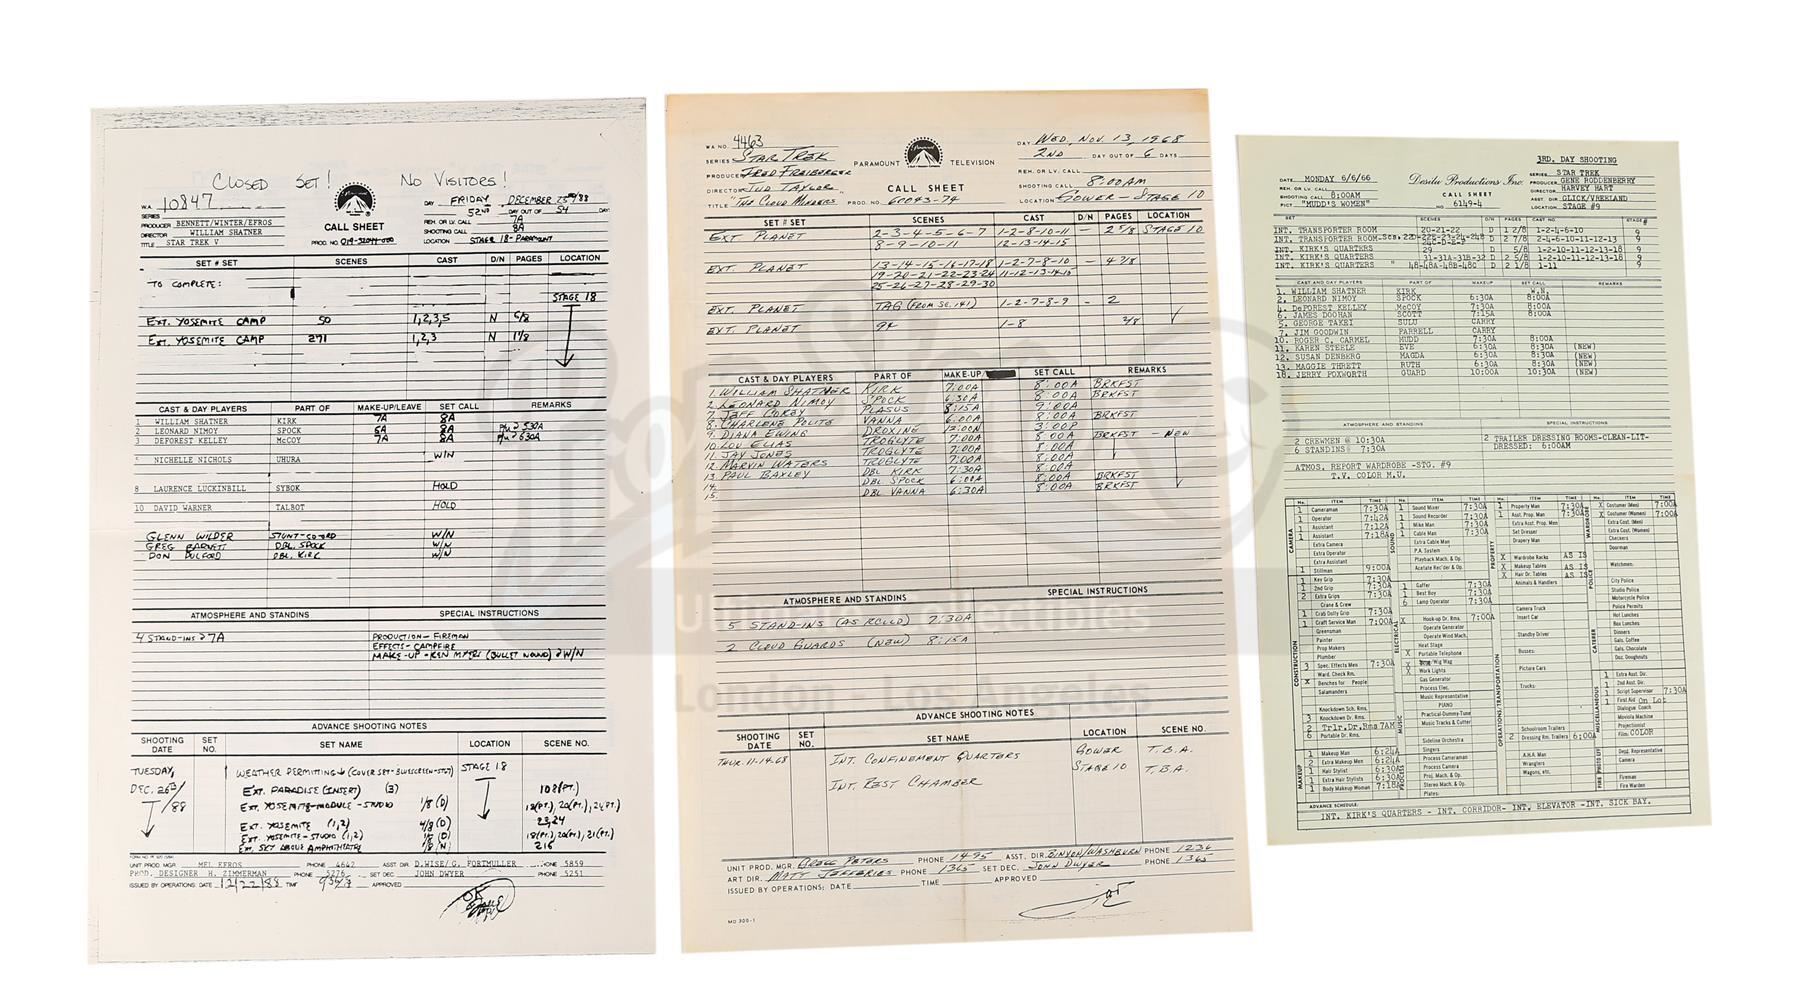 CLOSED SET! NO VISITORS!
W.A. 10847
SERIES
PRODUCER BENNETT/WINTER/EFROS
DIRECTOR WILLIAM SHATNER
TITLE STAR TREK V
CALL SHEET
PROD. NO.
DAY FRIDAY DECEMBER
52ND DAY OUT OF 54 DAY
REH. OR LV. CALL 7A
SHOOTING CALL 8A
LOCATION STAGE 18-PARAMOUNT
SET # SET SCENES CAST D/N PAGES LOCATION
TO COMPLETE:
STAGE 18
EXT. YOSEMITE CAMP 50 1,2,3,5 N 5/8
EXT. YOSEMITE CAMP 271 1,2,3 N 1 1/8
CAST & DAY PLAYERS PART OF MAKE-UP/LEAVE SET CALL REMARKS
1 WILLIAM SHATNER KIRK 7A 8A
2 LEONARD NIMOY SPOCK 5A 8A P/U @ 530A
3 DEFOREST KELLEY McCOY 7A 8A P/U @ 630A
5 NICHELLE NICHOLS UHURA W/N
8 LAURENCE LUCKINBILL SYBOK HOLD
10 DAVID WARNER TALBOT HOLD
GLENN WILDER STUNT-COORD W/N
GREG BARNETT DBL. SPOCK W/N
DON PULFORD DBL. KIRK W/N
ATMOSPHERE AND STANDINS SPECIAL INSTRUCTIONS
4 STAND-INS @ 7A PRODUCTION-FIREMAN
EFFECTS-CAMPFIRE
MAKE-UP-KEN MYERS (BULLET WOUND) @ W/N
ADVANCE SHOOTING NOTES
SHOOTING DATE SET NO. SET NAME LOCATION SCENE NO.
TUESDAY, DEC. 26TH/88 WEATHER PERMITTING (COVER SET-BLUESCREEN-STG7) STAGE 18
EXT. PARADISE (INSERT) (3) 108(PT.)
EXT. YOSEMITE-MODULE-STUDIO 1/8 (D) 18(PT.), 20(PT.), 21(PT.)
EXT. YOSEMITE (1,2) 4/8 (D) 23,24
EXT. YOSEMITE-STUDIO (1,2) 1/8 (D) 18(PT.), 20(PT.), 21(PT.)
EXT. SKY ABOVE AMPHITHEATRE 1/8 (N) 216
UNIT PROD. MGR. MEL EFROS PHONE 4642 ASST DIR. D.WISE/G. FORTMULLER PHONE 5859
PROD. DESIGNER H. ZIMMERMAN PHONE 5276 SET DEC JOHN DWYER PHONE 5251
ISSUED BY OPERATIONS: DATE 12/22/88 TIME APPROVED
OK
WA NO. 4463
SERIES STAR TREK
PRODUCER FRED FREIBERGER
DIRECTOR JUD TAYLOR
TITLE "THE CLOUD MINDERS" PROD. NO. 60043-74
PARAMOUNT TELEVISION
CALL SHEET
DAY WED, NOV 13, 1968
2ND DAY OUT OF 6 DAYS
REH. OR LV. CALL
SHOOTING CALL 8:00AM
LOCATION GOWER - STAGE 10
SET # SET SCENES CAST D/N PAGES LOCATION
EXT PLANET 2-3-4-5-6-7 1-2-8-10-11 - 2 5/8 STAGE 10
8-9-10-11 12-13-14-15
EXT. PLANET 13-14-15-16-17-18 1-2-7-8-10 - 4 7/8
19-20-21-22-23-24 11-12-13-14-15
25-26-27-28-29-30
EXT. PLANET TAG (FROM SC. 141) 1-2-7-8-9 - 2
EXT. PLANET 1-8 2/8
CAST & DAY PLAYERS PART OF MAKE-UP/ SET CALL REMARKS
1. WILLIAM SHATNER KIRK 7:00A 8:00A BRKFST
2. LEONARD NIMOY SPOCK 6:30A 8:00A BRKFST
7. JEFF COREY PLASUS 8:15A 9:00A
8. CHARLENE POLITE VANNA 6:00A 8:00A BRKFST
9. DIANA EWING DROXINE 12:00N 3:00P
10. LOU ELIAS TROGLYTE 7:00A 8:00A BRKFST - NEW
11. JAY JONES TROGLYTE 7:00A 8:00A
12. MARVIN WATERS TROGLYTE 7:00A 8:00A
13. PAUL BAXLEY DBL KIRK 7:30A 8:00A
14. DBL SPOCK 6:00A 8:00A BRKFST
15. DBL VANNA 6:30A 8:00A BRKFST
ATMOSPHERE AND STANDINS SPECIAL INSTRUCTIONS
5 STAND-INS (AS RCLLD) 7:30A
2 CLOUD GUARDS (NEW) 8:15A
ADVANCE SHOOTING NOTES
SHOOTING DATE SET NO. SET NAME LOCATION SCENE NO.
THUR. 11-14-68 INT. CONFINEMENT QUARTERS GOWER T.B.A.
INT. REST CHAMBER STAGE 10 T.B.A.
UNIT PROD. MGR. GREGG PETERS PHONE 1495 ASST. DIR. BINYON/WASHBURN PHONE 1236
ART DIR. MATT JEFFERIES PHONE 1365 SET DEC. JOHN DWYER PHONE 1365
ISSUED BY OPERATIONS: DATE TIME APPROVED
MD 300-1
3RD. DAY SHOOTING
DATE MONDAY 6/6/66
REH. OR LV. CALL
SHOOTING CALL 8:00AM
PICT "MUDD'S WOMEN"
Desilu Productions Inc.
CALL SHEET
NO 6149-4
SERIES STAR TREK
PRODUCER GENE RODDENBERRY
DIRECTOR HARVEY HART
ASST. DIR GLICK/VREELAND
LOCATION STAGE #9
SET SCENES D/N PAGES CAST NO. STAGE #
INT. TRANSPORTER ROOM 20-21-22 D 1 2/8 1-2-4-6-10 9
INT. TRANSPORTER ROOM D 2 7/8 2-4-6-10-11-12-13 9
INT. KIRK'S QUARTERS 29 D 5/8 1-2-10-11-12-13-18 9
INT. KIRK'S QUARTERS 31-31A-31B-32 D 2 5/8 1-2-10-11-12-13-18 9
INT. KIRK'S QUARTERS " 48-48A-48B-48C D 2 1/8 1-11 9
CAST AND DAY PLAYERS PART OF MAKEUP SET CALL REMARKS
1. WILLIAM SHATNER KIRK W.N.
2. LEONARD NIMOY SPOCK 6:30A 8:00A
4. DeFOREST KELLEY McCOY 7:30A 8:00A
6. JAMES DOOHAN SCOTT 7:15A 8:00A
5. GEORGE TAKEI SULU CARRY
7. JIM GOODWIN FARRELL CARRY
10. ROGER C. CARMEL MUDD 7:30A 8:00A
11. KAREN STEELE EVE 6:30A 8:30A (NEW)
12. SUSAN DENBERG MAGDA 6:30A 8:30A (NEW)
13. MAGGIE THRETT RUTH 6:30A 8:30A (NEW)
18. JERRY FOXWORTH GUARD 10:00A 10:30A (NEW)
ATMOSPHERE AND STANDINS SPECIAL INSTRUCTIONS
2 CREWMEN @ 10:30A 2 TRAILER DRESSING ROOMS-CLEAN-LIT-
6 STANDINS@ 7:30A DRESSED: 6:00AM
ATMOS. REPORT WARDROBE -STG. #9
T.V. COLOR M.U.
No. ITEM TIME No. ITEM TIME No. ITEM TIME
CAMERA
1 Cameraman 7:30A
1 Operator 7:42A
1 Assistant 7:12A
1 Assistant 7:18A
Extra Camera
Extra Operator
Extra Assistant
1 Stillman 9:00A
CONSTRUCTION
1 Key Grip 7:30A
1 2nd Grip 7:30A
2 Extra Grips 7:30A
Crane & Crew
1 Crab Dolly Grip 7:30A
1 Craft Service Man 7:00A
Greensman
Painter
Prop Makers
Plumber
3 Spec. Effects Men 7:30A
Ward. Check Rm.
X Benches for People
Salamanders
Knockdown Sch. Rms.
3 Knockdown Dr. Rms.
2 Trlr.Dr.Rms 7AM
Portable Dr. Rms.
MAKEUP
1 Makeup Man 6:24A
2 Extra Makeup Men 6:24A
1 Hair Stylist 6:30A
1 Extra Hair Stylists 6:30A
1 Body Makeup Woman 7:18A
SOUND
1 Sound Mixer 7:30A
1 Sound Recorder 7:30A
1 Mike Man 7:30A
1 Cable Man 7:30A
Extra Cable Man
P.A. System
Playback Mach. & Op.
Acetate Rec'der & Op.
ELECTRICAL
1 Gaffer 7:30A
1 Best Boy 7:30A
6 Lamp Operator 7:30A
X Hook-up Dr. Rms. 7:00A
Operate Generator
Operate Wind Mach.
Heat Stage
X Portable Telephone
Wig Wag
X Work Lights
Gas Generator
Process Elec.
MUSIC
Music Representative
PIANO
Practical-Dummy-Tune
Music Tracks & Cutter
Sideline Orchestra
Singers
PROCESS
Process Cameraman
Process Camera
Proj. Mach. & Op.
Stereo Mach. & Op.
Plates:
PROPERTY
1 Property Man 7:30A
1 Asst. Prop. Man 7:30A
Extra Asst. Prop. Men
Set Dresser
Drapery Man
X Wardrobe Racks AS IS
X Makeup Tables AS IS
X Hair Dr. Tables AS IS
Animals & Handlers
OPERATIONS/TRANSPORTATION
Camera Truck
Insert Car
Standby Driver
Busses:
Picture Cars
Trucks:
Schoolroom Trailers
2 Dressing Rm. Trailers 6:00A
A.H.A. Man
Wranglers
Wagons, etc.
WARDROBE
X Costumer (Men) 7:00A
X Costumer (Women) 7:00A
Extra Cost. (Men)
Extra Cost. (Women)
Checkers
Doorman
POLICE
Watchmen:
City Police
Studio Police
Motorcycle Police
Police Permits
CATERER
Hot Lunches
Box Lunches
Dinners
Gals. Coffee
Gals. Chocolate
Doz. Doughnuts
MISCELLANEOUS
1 Extra Asst. Dir.
1 2nd Asst. Dir.
1 Script Supervisor 7:30A
1 First Aid On Lot
Dialogue Coach
Moviola Machine
Projectionist
Film: COLOR
Dept. Representative
Camera
FIRE
Fireman
Fire Warden
ADVANCE SCHEDULE:
INT. KIRK'S QUARTERS - INT. CORRIDOR- INT. ELEVATOR -INT. SICK BAY.
Prop Store
Ultimate Collectables
London - Los Angeles